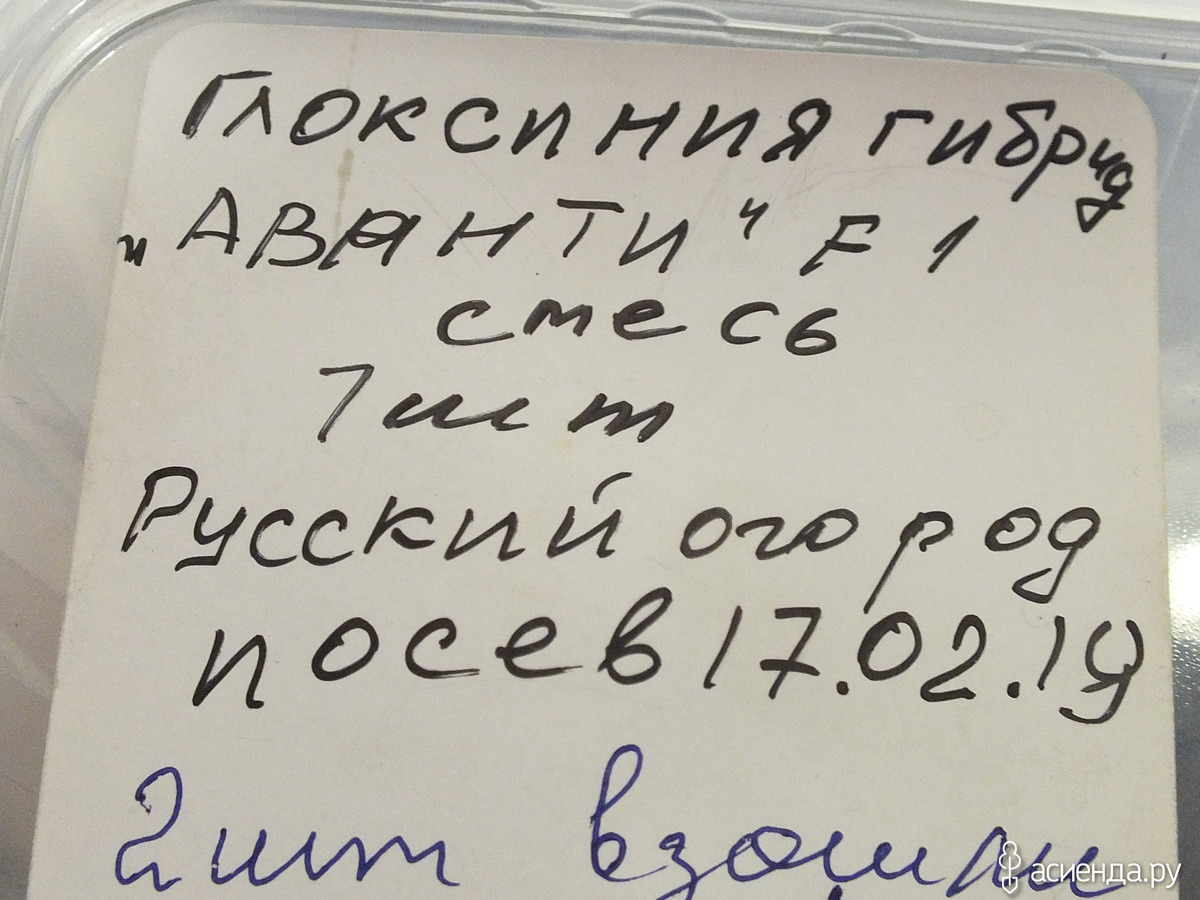 Глоксиния гибрид
„АВАНТИ" F1
смесь
7 шт
Русский огород
посев 17.02.19
2 шт взошли
асиенда.ру